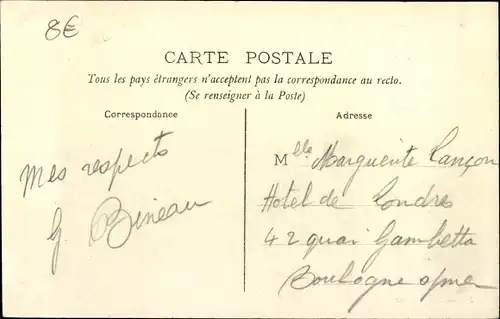 8€
CARTE POSTALE
Tous les pays étrangers n'acceptent pas la correspondance au recto.
(Se renseigner à la Poste)
Correspondance
Adresse
Mes respects
G. Bineau
Mlle Marguerite Lançon
Hotel de Londres
42 quai Gambetta
Boulogne s/mer